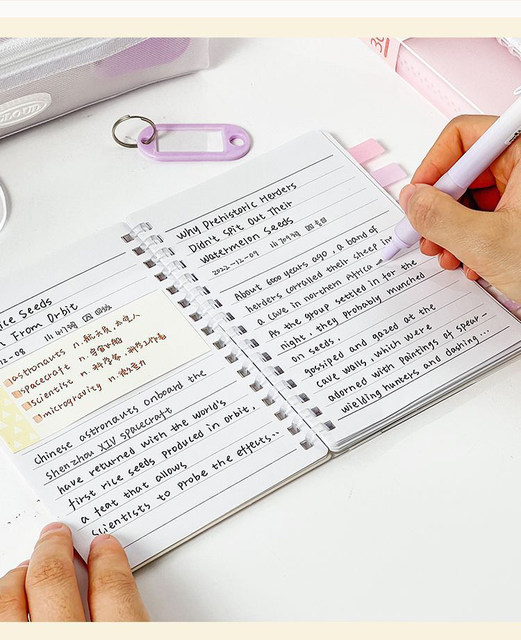 Rice Seeds
From Orbit
12-09
astronauts n. 航天员,太空人
spacecraft n. 宇宙飞船
scientist n. 科学家,科学工作者
microgravity n. 微重力
chinese astronauts onboard the
shenzhou XIV spacecraft
have returned with the world's
first rice seeds produced in orbit,
a feat that allows
scientists to probe the effects..
Why Prehistoric Herders
Didn't Spit Out Their
Watermelon Seeds
2022-12-09
About 6000 years ago, a band of
herders corralled their sheep in
a cave in northern Africa
As the group settled in for the
night, they probably munched
on seeds.
gossiped and gazed at the
cave walls, which were
adorned with paintings of spear-
wielding hunters and dancing...